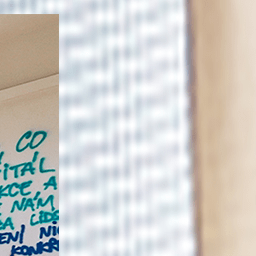 CO
ITÁL
KCE A
NÁM
A LIDS
ENÍ NI
KONKR